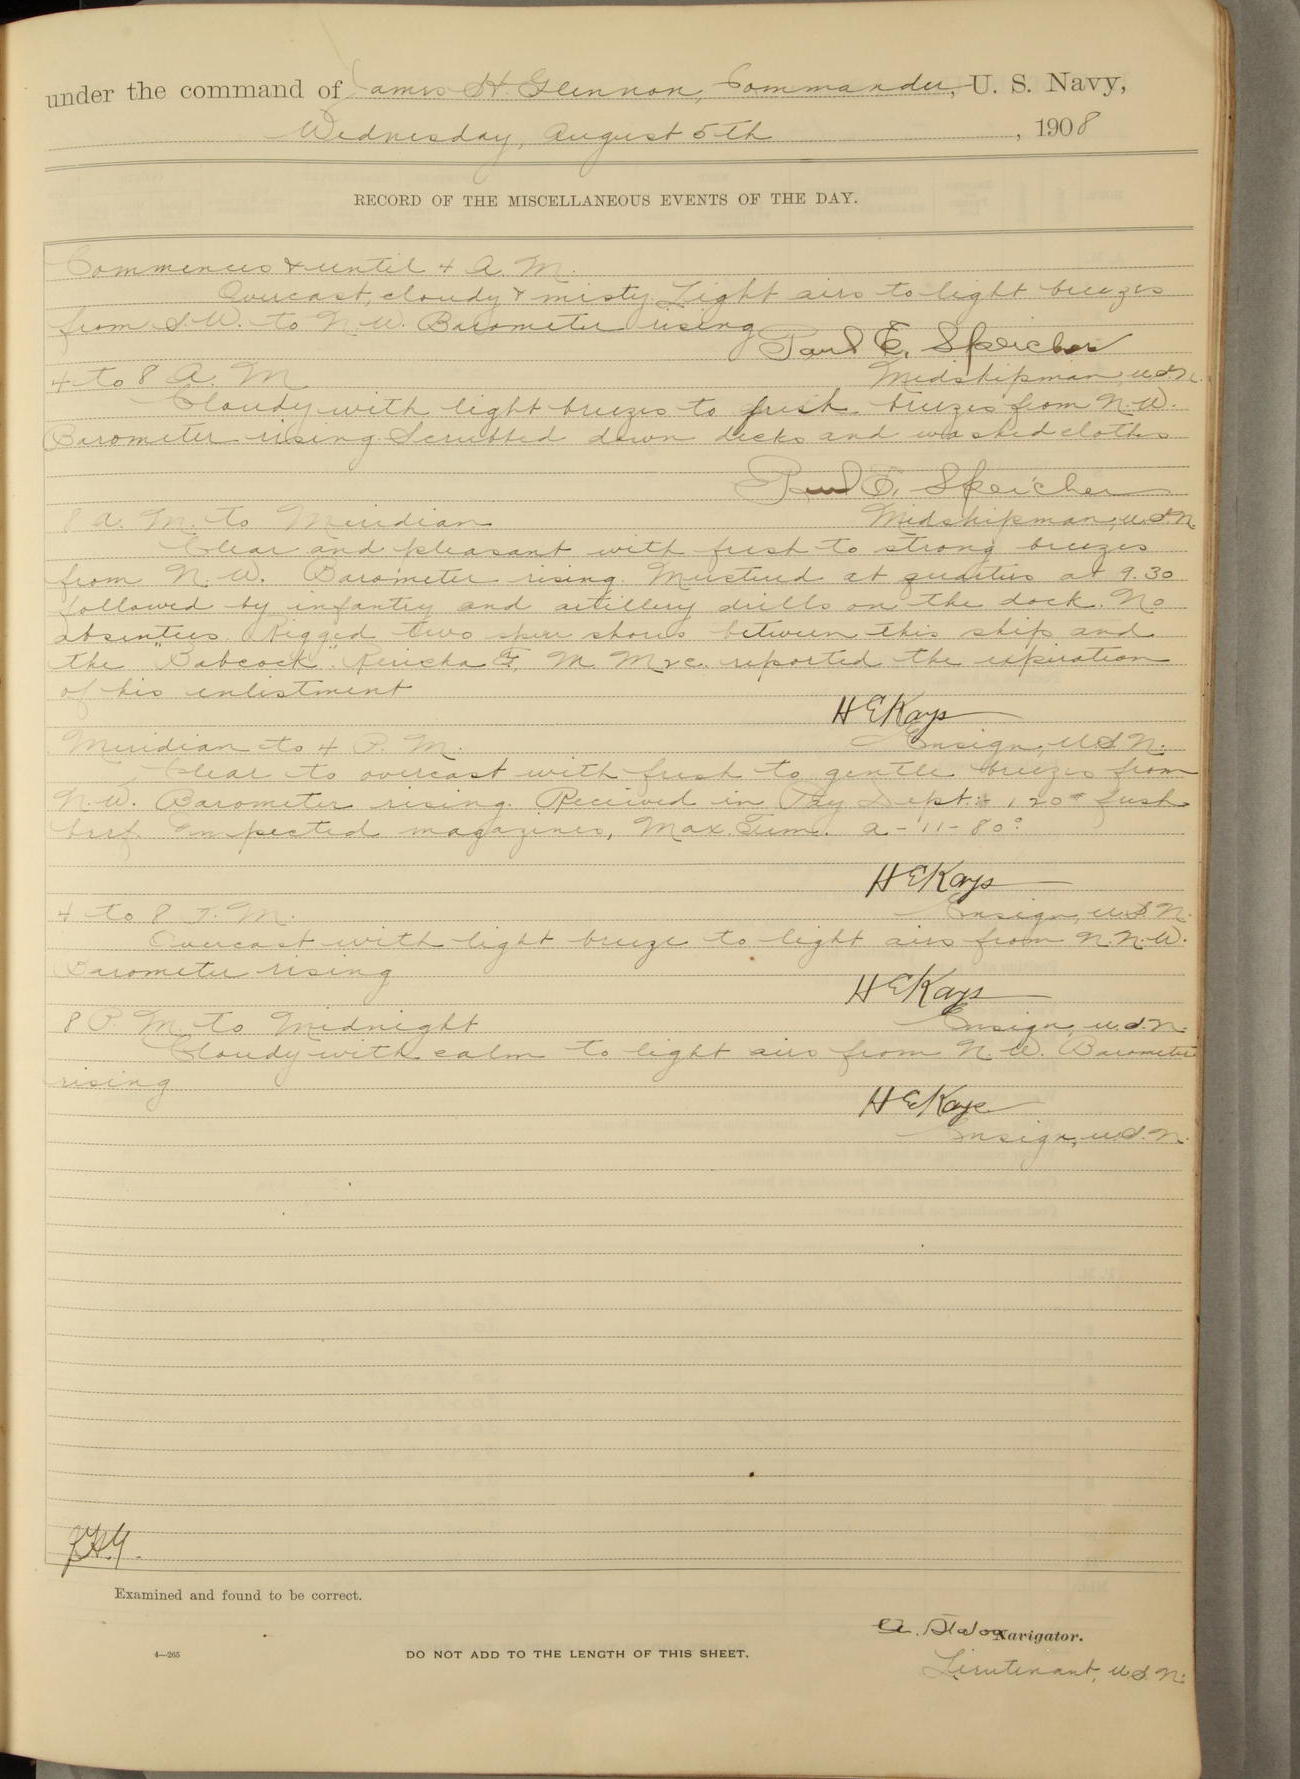 under the command of James H. Glennon, Commander, U. S. Navy,
Wednesday, August 5th, 1908
RECORD OF THE MISCELLANEOUS EVENTS OF THE DAY.
Commences & until 4 A. M.
Overcast, cloudy & misty. Light airs to light breezes
from S.W. to N.W. Barometer rising
Paul E. Speicher
4 to 8 A. M.
Midshipman, U.S.N.
Cloudy with light breezes to fresh breezes from N.W.
Barometer rising. Scrubbed down decks and washed clothes
Paul E. Speicher
8 A. M. to Meridian
Midshipman, U.S.N.
Clear and pleasant with fresh to strong breezes
from N.W. Barometer rising. Mustered at quarters at 9.30
followed by infantry and artillery drills on the dock. No
absentees. Rigged two spur shores between this ship and
the "Babcock". F, M M 2 c. reported the expiration
of his enlistment
H E Kays
Meridian to 4 P. M.
Ensign, U.S.N.
Clear to overcast with fresh to gentle breezes from
N.W. Barometer rising. Received in Pay Dept. 120# fresh
beef. Inspected magazines, Max. Tem. A-11-80°
H E Kays
4 to 8 P. M.
Ensign, U.S.N.
Overcast with light breeze to light airs from N.N.W.
Barometer rising
H E Kays
8 P. M. to Midnight
Ensign, U.S.N.
Cloudy with calm to light airs from N.W. Barometer
rising
H E Kays
Ensign, U.S.N.
J.H.G.
Examined and found to be correct.
Navigator.
4—265
DO NOT ADD TO THE LENGTH OF THIS SHEET.
Lieutenant, U.S.N.